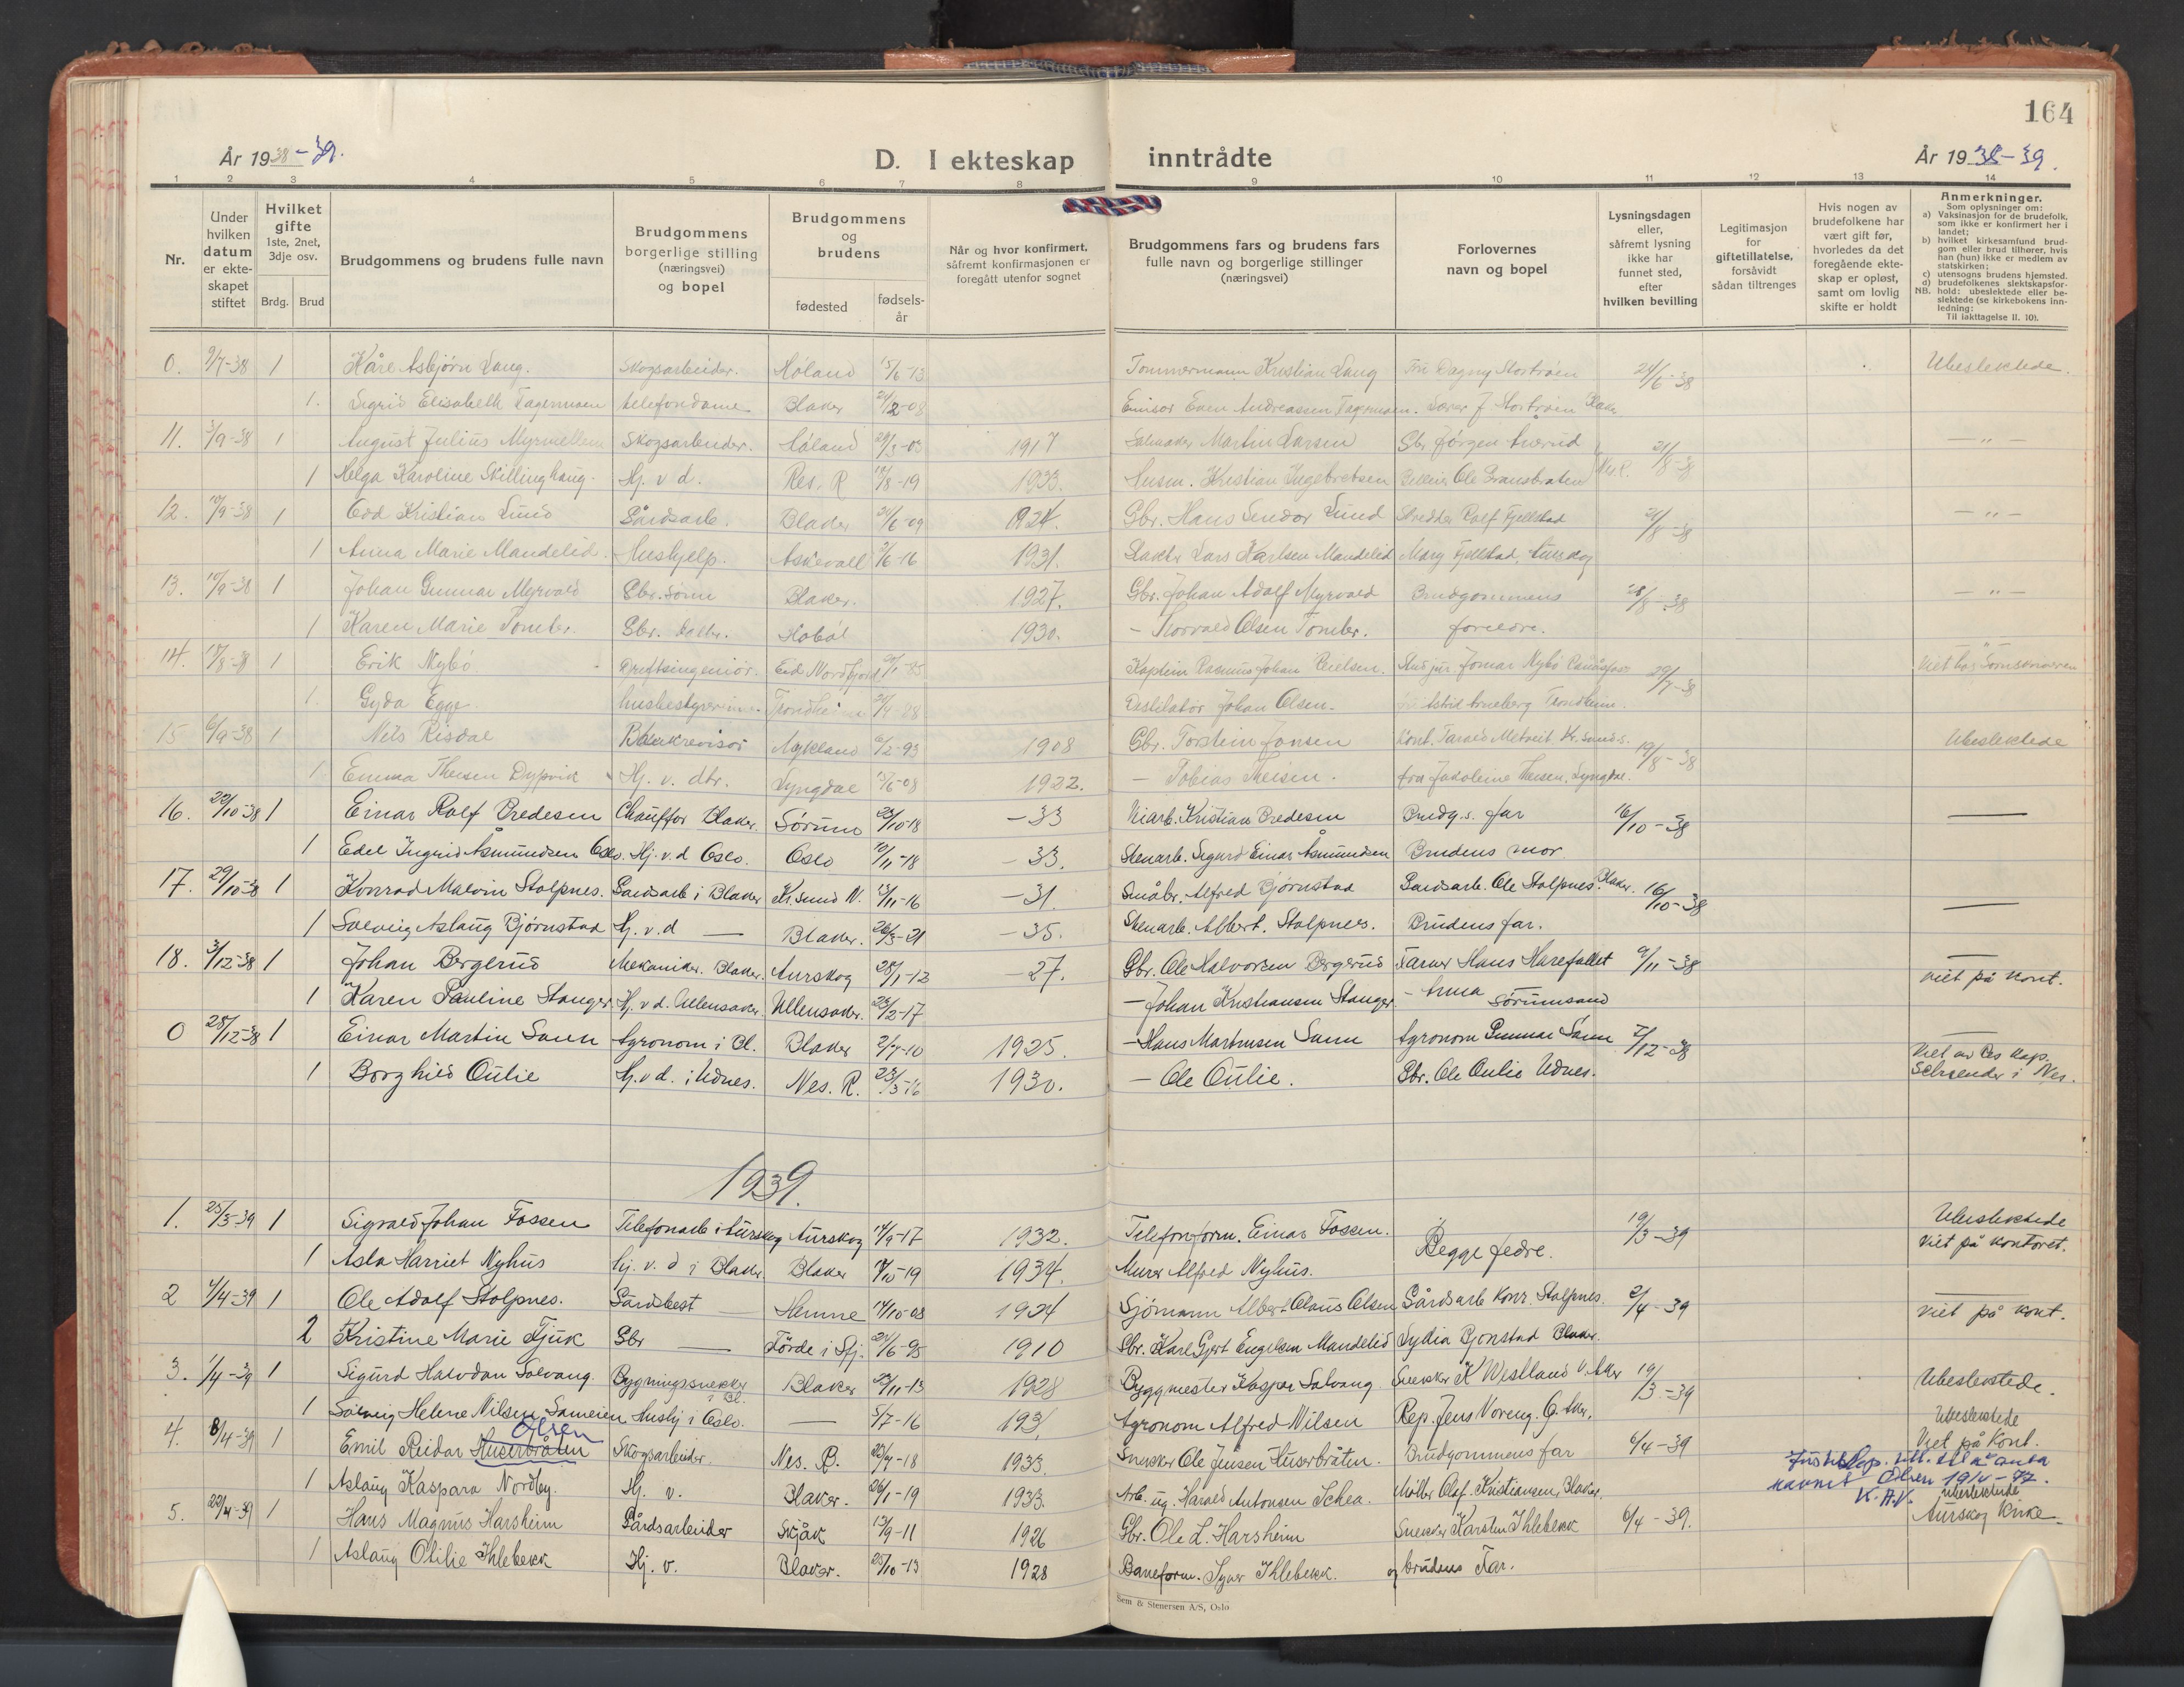 164
År 1938-39.
D. I ekteskap inntrådte
År 1938-39.
1 2 3 4 5 6 7 8 9 10 11 12 13 14
Nr.
Under hvilken datum er ekteskapet stiftet
Hvilket gifte 1ste, 2net, 3dje osv.
Brdg. Brud
Brudgommens og brudens fulle navn
Brudgommens borgerlige stilling (næringsvei) og bopel
Brudgommens og brudens
fødested
fødsels-år
Når og hvor konfirmert, såfremt konfirmasjonen er foregått utenfor sognet
Brudgommens fars og brudens fars fulle navn og borgerlige stillinger (næringsvei)
Forlovernes navn og bopel
Lysningsdagen eller, såfremt lysning ikke har funnet sted, efter hvilken bevilling
Legitimasjon for giftetillatelse, forsåvidt sådan tiltrenges
Hvis nogen av brudefolkene har vært gift før, hvorledes da det foregående ekteskap er opløst, samt om lovlig skifte er holdt
Anmerkninger.
Som oplysninger om:
a) Vaksinasjon for de brudefolk, som ikke er konfirmert her i landet;
b) hvilket kirkesamfund brudgom eller brud tilhører, hvis han (hun) ikke er medlem av statskirken;
c) utensogns brudens hjemsted.
d) brudefolkenes slektskapsforhold: ubeslektede eller beslektede (se kirkebokens innledning:
NB.
Til iakttagelse II. 10).
0. 9/7-38 1 Kåre Asbjørn Lang. Skogsarbeider. Høland 15/6-13 Tømmermann Kristian Lang Fru Dagny Stortrøen 24/6-38 Ubeslektede.
1. Sigrid Elisabeth Fagermoen telefondame Blaker 24/12-08 Even Andreassen Fagermoen. Lærer J Stortrøen Blaker
11. 3/9-38 1 August Julius Myrmellem Skogsarbeider. Høland 29/3-03 1917 Martin Larsen Gbr Jørgen 21/8-38 - " -
1 Helga Karoline Skillinghaug. Hj. v d. Nes. R 19/8-19 1933. Husm. Kristian Ingebretsen Ole Nes R.
12. 10/9-38 1 Odd Kristian Lund Gårdsarb. Blaker 24/6-09 1924. Gbr. Hans Lund Skredder Rolf Fjellstad 21/8-38 - " -
1 Anna Marie Mandelid. Hushjelp. Askevoll 3/6-16 1931. Slakter Lars Karlsen Mandelid Mary Fjellstad, Aurskog
13. 10/9-38 1 Johan Gunnar Myrvold Gbr. sønn Blaker. 1927. Gbr. Johan Adolf Myrvold Brudgommens 28/8-38 - " -
1 Karen Marie Tomter. Gbr. datter. Hobøl 1930. - Thorvald Olsen Tomter. foreldre.
14. 17/8-38 1 Erik Nybø Driftsingeniør. Eid Nordfjord Kaptein Rasmus Johan Nielsen. Stud jur. Jomar Nybø 29/7-38 - " -
1. Gyda Egge. husbestyrerinne. Trondheim Destilatør Johan Olsen. Astrid Arneberg Trondheim.
15 6/9-38 1 Nils Risdal Bankrevisor Mykland 6/2-93 1908 Gbr. Torstein Jonsen Kont. 19/8-38 Ubeslektede
1. Emma Theisen Dypvik Hj. v. dtr. Lyngdal 13/6-08 1922. - Tobias Theisen. fru Theisen, Lyngdal.
16. 22/10-38 1 Einar Rolf Bredesen Chauffør Blaker. Sørum 23/10-18 -33 Kristian Bredesen Brudg.s. far 16/10-38 —
1 Edel Ingrid Åsmundsen Oslo. Hj.v.d Oslo. Oslo 10/11-18 -33. Stenarb. Sigurd Einar Åsmundsen Brudens mor
17. 29/10-38 1 Konrad Malvin Stolpnes. Gardsarb i Blaker Kr.sund N. 13/11-16 -31. Småbr. Alfred Bjørnstad Gardsarb. Ole Stolpnes Blaker. 16/10-38 —
1 Solveig Aslaug Bjørnstad Hj. v. d — Blaker. 26/3-21 -35. Stenarb. Albert. Stolpnes. Brudens far.
18. 3/12-38 1 Johan Bergerud Mekaniker. Blaker. Aurskog 28/1-12 -27. Gbr. Ole Halvorsen Bergerud Farver Hans Harefallet 9/11-38 — viet på kont.
1 Karen Pauline Stanger Hj. v d. Ullensaker. Ullensaker. 23/2-17 - Johan Kristiansen Stanger - Anna — Sørumsand
0 28/12-38 1 Einar Martin Sann Agronom i Bl. Blaker 2/7-10 1925. - Hans Martinsen Sann Agronom Gunnar Sann 7/12-38 — Viet av Res kap.
1 Borghild Oulie Hj.v d. i Udnes. Nes. R. 23/3-16 1930. - Ole Oulie. Gbr. Ole Oulie Udnes. i Nes.
1939.
1. 25/3-39 1 Sigvald Johan Fossen Telefonarb i Aurskog Aurskog 14/9-17 1932. Telefonform. Einar Fossen. Begge fedre. 19/3-39 Ubeslektede
1 Asla Harriet Nyhus Hj. v. d i Blaker. Blaker 19/10-19 1934. Murer Alfred Nyhus. Viet på kontoret.
2 4/4-39 1 Ole Adolf Stolpnes. Gårdsbest — Hemne 14/10-08 1924 Sjømann Albert Claus Olsen Gårdsarb Konr. Stolpnes. 2/4-39 — viet på kont.
2 Kristine Marie Fjuk Gbr — Førde i Sfj. 24/6-95 1910 Gbr. Karl Gjert Engelsen Mandelid Lydia Bjonstad Blaker.
3. 1/4-39 1 Sigurd Halvdan Solvang. Bygningssnekker i Bl. Blaker 23/11-13 1928 Byggmester Kaspar Solvang Snekker K Westland V. Aker 19/3-39 Ubeslektede.
1 Solveig Helene Nilsen Sameien Hushj i Oslo. — 5/7-16 1931 Agronom Alfred Nilsen Rep. Jens Voreng. Ø. Aker.
4. 8/4-39 1 Emil Reidar Huserbråten Olsen Skogsarbeider. Nes. R. 1933. Snekker Ole Jensen Huserbråten. Brudgommens far 6/4-39 Ubeslektede Viet på kont.
Justisdep. till. til å anta navnet Olsen K.A.V.
1 Aslaug Kaspara Nordby. Hj. v. Blaker. 26/1-19 1933. Arb. ug. Harald Antonsen Schea. Møller Olaf. Kristiansen, Blaker.
5. 22/4-39 1 Hans Magnus Harsheim Gårdsarbeider Skjåk 13/9-11 1926 Gbr. Ole L. Harsheim Snekker Karsten Ihlebekk 6/4-39. ubeslektede Aurskog kirke.
1 Aslaug Otilie Ihlebekk Hj. v. Blaker. 25/10-13 1928 Baneform. Syver Ihlebekk. og brudens Far.
Sem & Stenersen A/S, Oslo